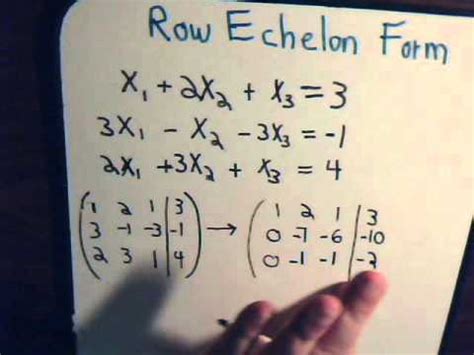 Row Echelon Form
x₁ + 2x₂ + x₃ = 3
3x₁ - x₂ - 3x₃ = -1
2x₁ + 3x₂ + x₃ = 4
( 1 2 1 | 3 ) → ( 1 2 1 | 3
3 -1 -3 | -1 0 -7 -6 | -10
2 3 1 | 4 0 -1 -1 | -2